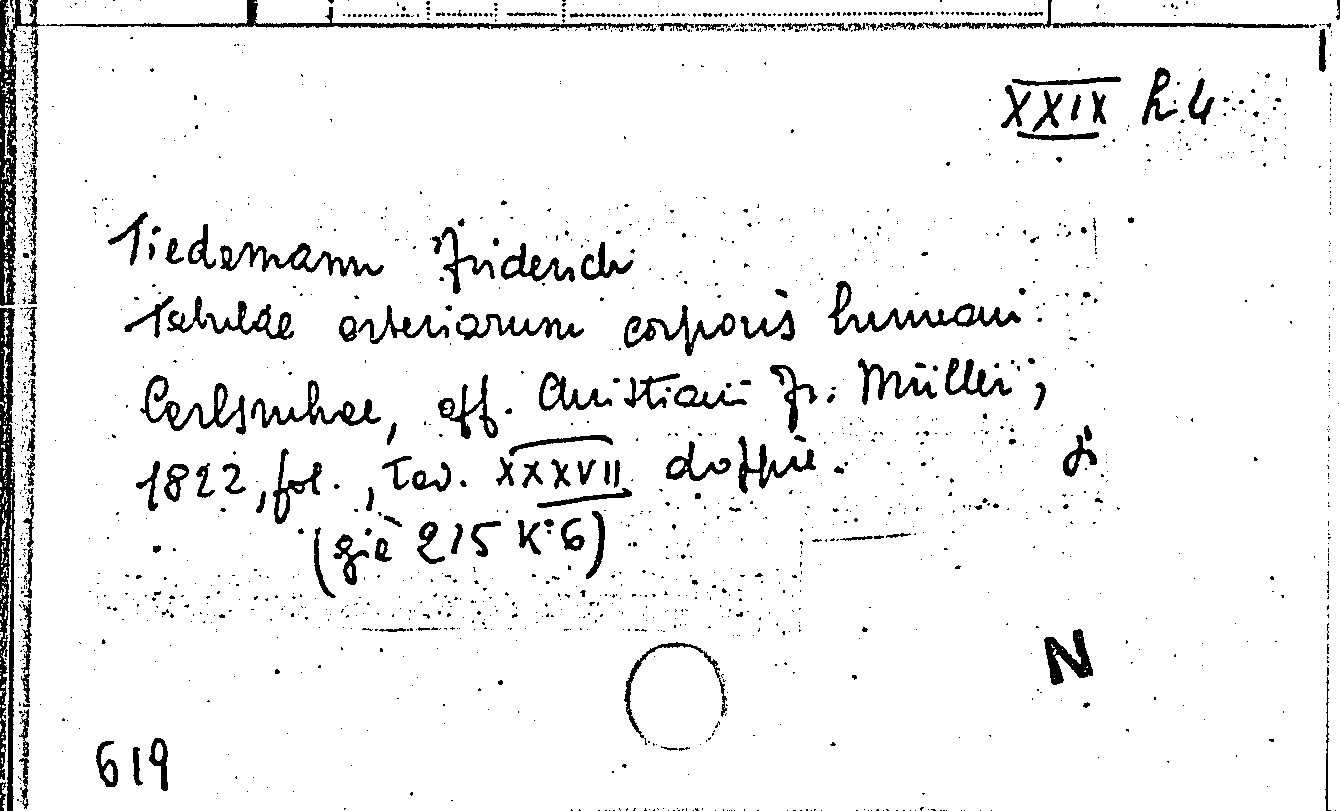 XXIX h. 4
Tiedemann Friderich
Tabulae arteriarum corporis humani.
Carlsruhae, off. Christiani Fr. Müller,
1822, fol., Tav. XXXVII doppie.
(già 215 K. 6)
N
619